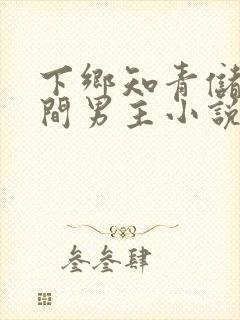 下鄉知青儲
間男主小説
叁叁肆